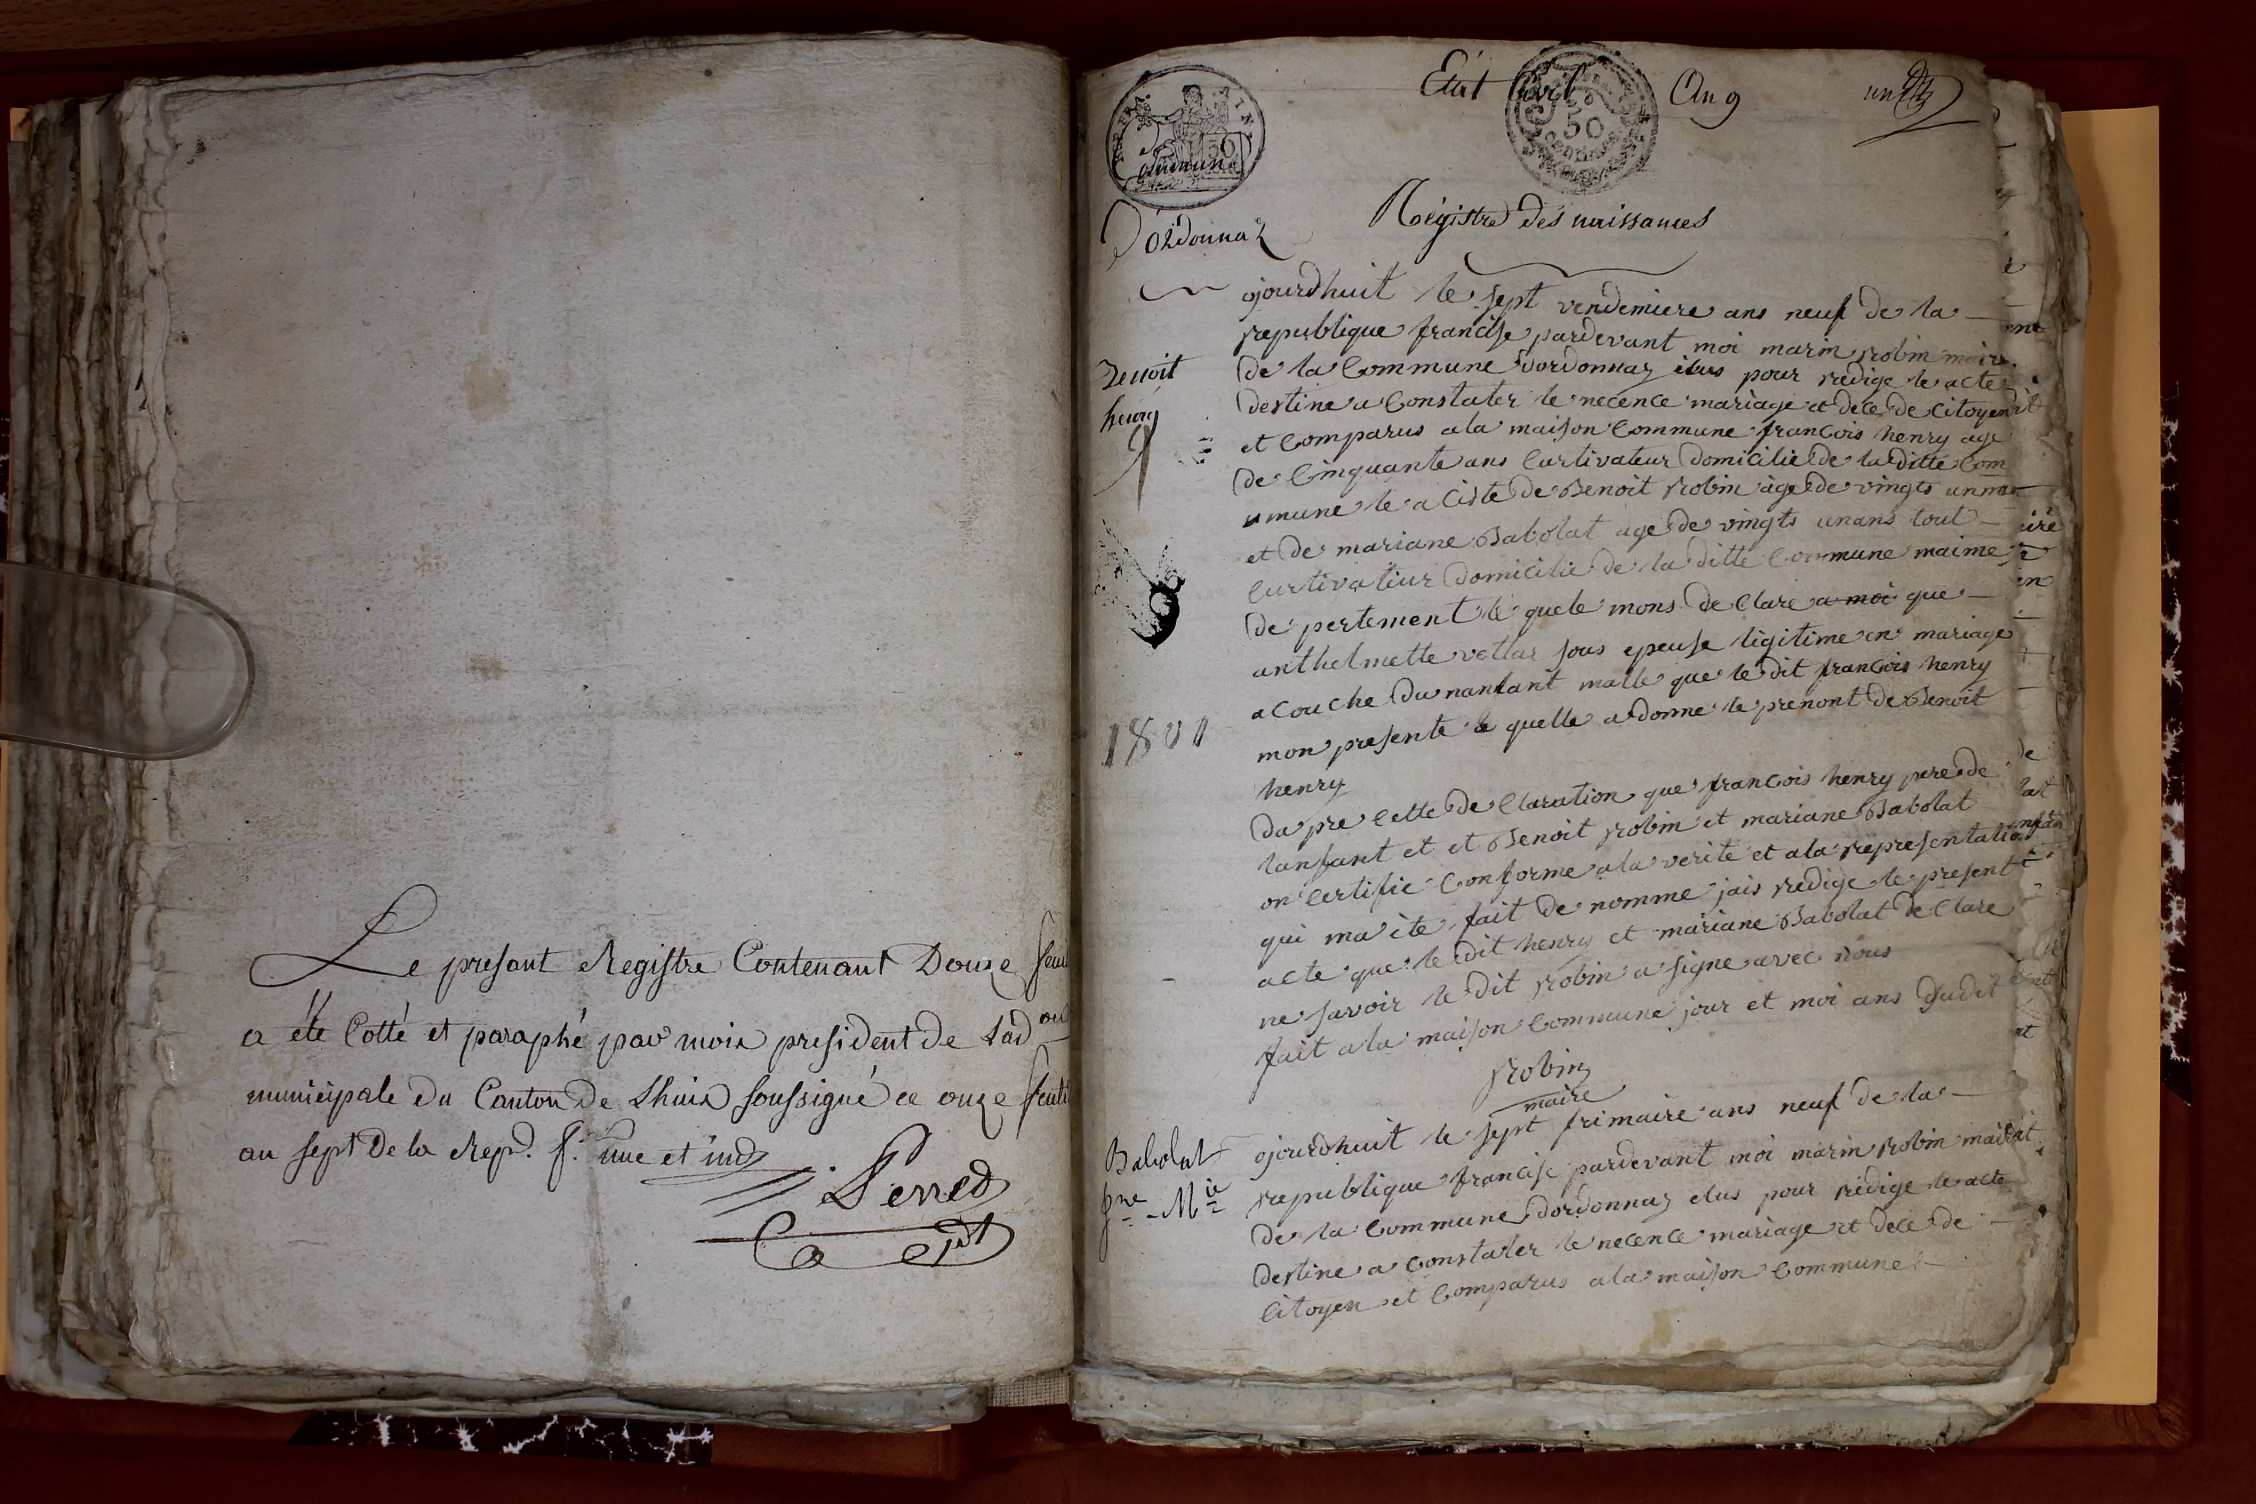 Le present Registre Contenant Douze feuil
a été Cotté et paraphé par moi president de Lad
municipale du Canton de Lhuis soussigné ce onze
au sept De la Rep. f. une et ind
Perred
pdt
État Civil An 9 un
50
commune
Dordonnaz
Régistre des naissances
ojourdhuit le sept vendemiere ans neuf de la
republique francise pardevant moi marin robin maire
de la Commune dordonnaz elus pour redige le acte
destine a Constater le necence mariage et dece de Citoyen
et Comparus a la maison Commune francois henry age
de Cinquante ans Curtivateur domicilie de la ditte Com
mune le aciste de Benoit robin age de vingts un
et de mariane Babolat age de vingts unans tout
Curtivatiur domicilie de la ditte Commune maime
de pertement le quele mons de Clare a moi que
anthelmette vettar sous epeuse ligitime en mariage
acouche du nanfant malle que le dit francois henry
mon presente le quelle a donne le prenont de Benoit
henry
Benoit
henry
9
1801
Da pre Cette de Claration que francois henry pere de
lanfant et et Benoit robin et mariane Babolat
on Certifie Conforme a la verite et a la representation
qui ma ete fait de nomme jais redige le present
acte que le dit henry et mariane Babolat de Clare
ne savoir le dit robin a signe avec nous
fait a la maison Commune jour et moi ans dudit
robin
maire
Babolat
fne - Mie
ojourdhuit le sept frimaire ans neuf de la
republique francise pardevant moi marin robin maire
de la Commune dordonnaz elus pour redige le acte
destine a Constater le necence mariage et dece de
Citoyen et Comparus a la maison Commune